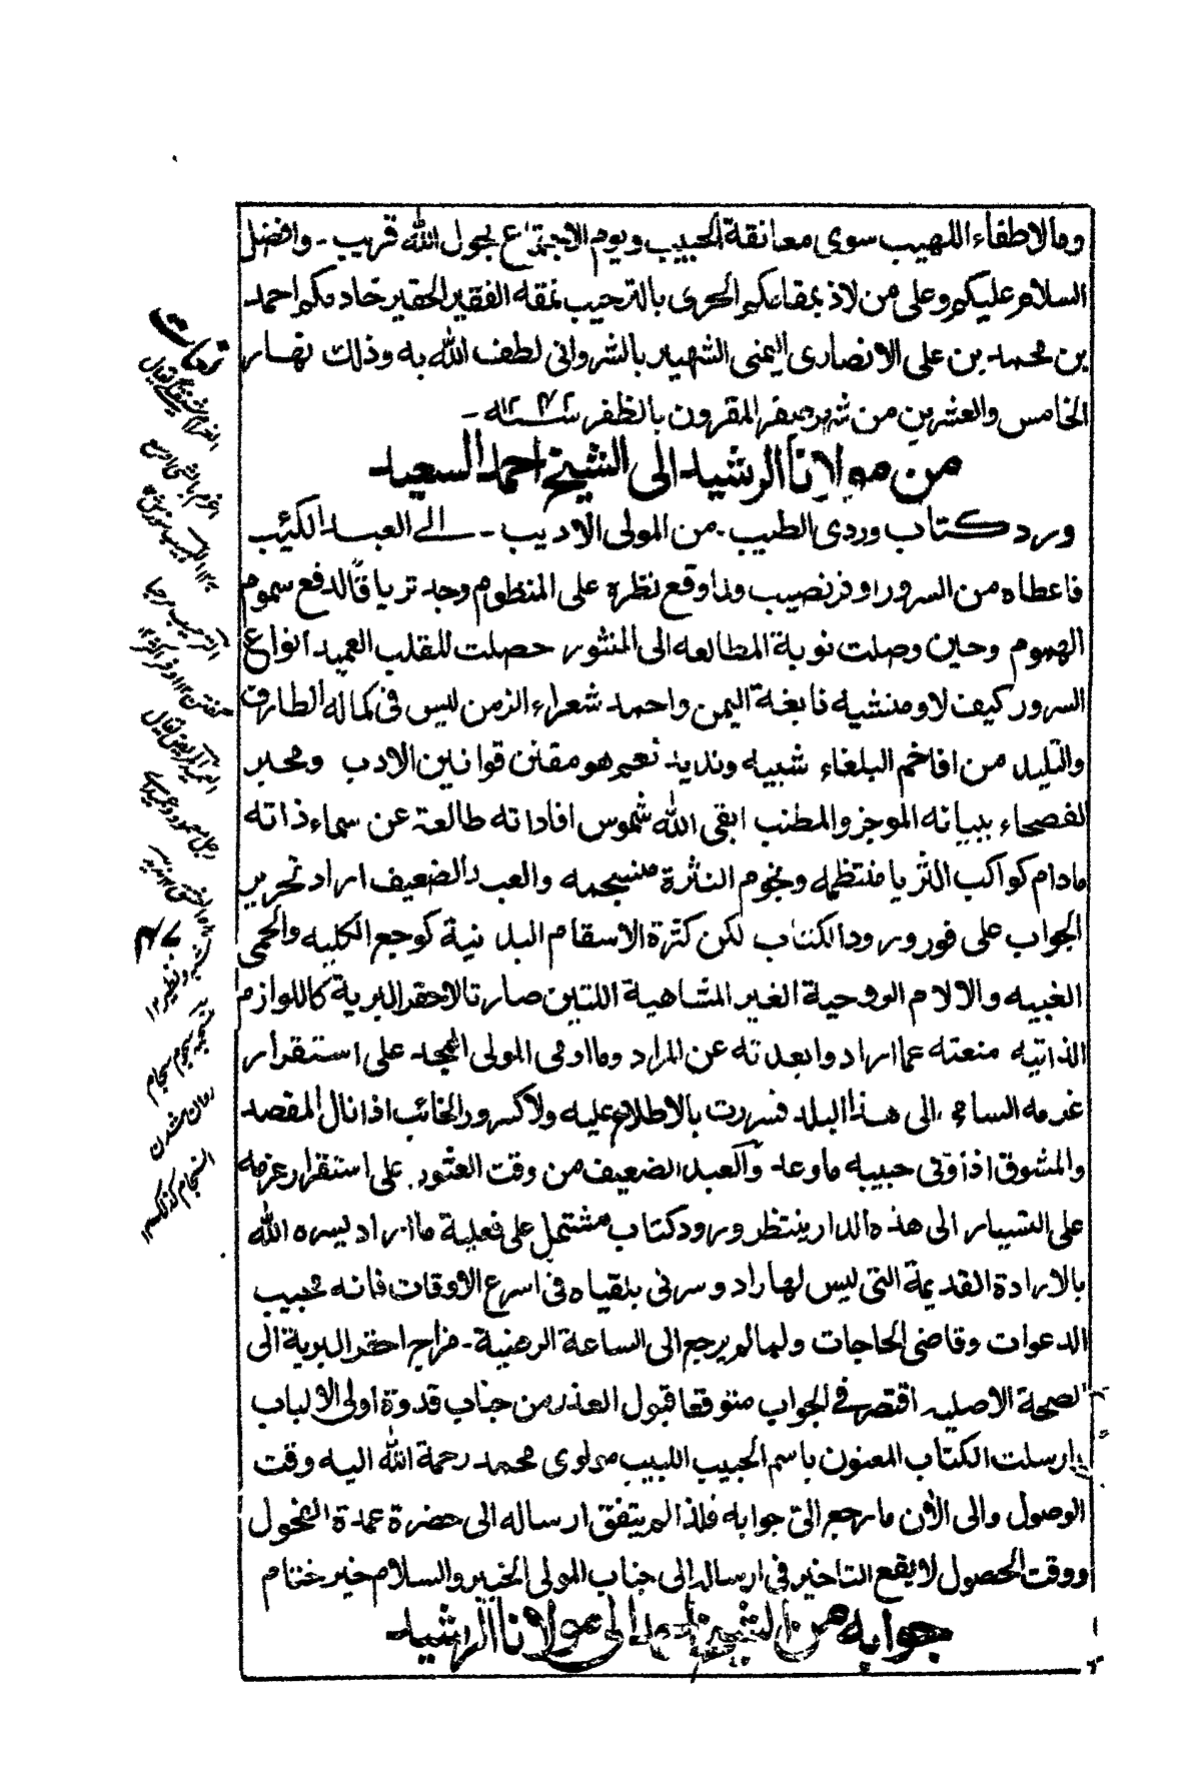 وما لاطفاء اللهيب سوى معانقة الحبيب ويوم الاجتماع بحول الله قريب ـ وافضل
السلام عليكم وعلى من لاذ بمقامكم الحرى بالترحيب نمقه الفقير الحقير خادمكم احمد
بن محمد بن على الانصارى اليمنى الشهير بالشروانى لطف الله به وذلك نهار
الخامس والعشرين من شهر صفر المقرون بالظفر
من مولانا الرشيد الى الشيخ احمد السعيد
ورد كتاب وردى الطيب ـ من المولى الاديب ـ الى العبد الكئيب
فاعطاه من السرور اوفر نصيب ولما وقع نظره على المنظوم وجد ترياقا لدفع سموم
الهموم وحين وصلت نوبة المطالعه الى المنثور حصلت للقلب العميد انواع
السرور كيف لا ومنشيه نابغة اليمن واحمد شعراء الزمن ليس فى كماله الطارف
والتليد من افاخم البلغاء شبيه ونديد نعم هو مقنن قوانين الادب ومحبر
لفصحاء ببيانه الموجز والمطنب ابقى الله شموس افاداته طالعة عن سماء ذاته
مادام كواكب الثريا منتظمه ونجوم النثرة منسجمه والعبد الضعيف اراد تحرير
الجواب على فور ورود الكتاب لكن كثرة الاسقام البدنية كوجع الكليه والحمى
الغبيه والالام الروحية الغير المتناهية اللتين صارتا لاحقر البرية كاللوازم
الذاتيه منعته عما اراد وابعدته عن المراد وما اومى المولى الممجد على استقرار
عزمه السامى الى هذا البلد فسررت بالاطلاع عليه ولا كسرور الخائب اذا نال المقصد
والمشوق اذا وفى حبيبه ما وعد والعبد الضعيف من وقت العثور على استقرار عزمه
على التسيار الى هذه الدار ينتظر ورود كتاب مشتمل على فعلية ما اراد يسره الله
بالارادة القديمة التى ليس لها راد وسرنى بلقياه فى اسرع الاوقات فانه مجيب
الدعوات وقاضى الحاجات ولما لم يرجع الى الساعة الرهينة ـ مزاج احقر البرية الى
لصحة الاصليه اقتصر فى الجواب متوقعا قبول العذر من جناب قدوة اولى الالباب
ارسلت الكتاب المعنون باسم الحبيب اللبيب مولوى محمد رحمة الله اليه وقت
الوصول والى الآن ما رجع الىّ جوابه فلذا لم يتفق ارساله الى حضرة عمدة الفحول
ووقت الحصول لا يقع التاخير فى ارساله الى جناب المولى الخبير والسلام خير ختام
جوابه من الشيخ احمد الى مولانا الرشيد